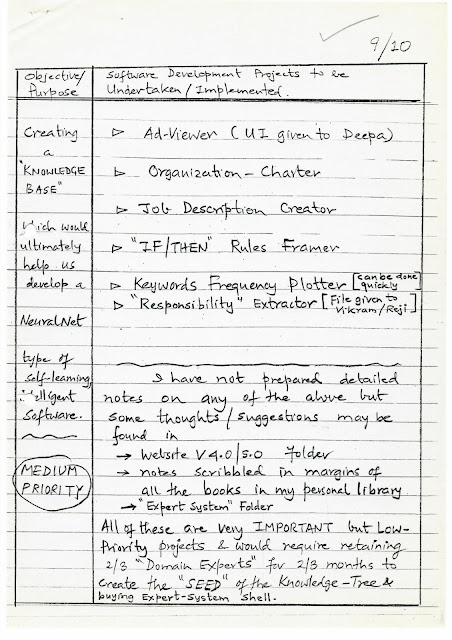 9/10
Objective/
Purpose
Software Development Projects to be
Undertaken/Implemented.
Creating
a
"KNOWLEDGE
BASE"
which would
ultimately
help us
develop a
NeuralNet
type of
self-learning
intelligent
Software.
MEDIUM
PRIORITY
▷ Ad-Viewer (UI given to Deepa)
▷ Organization-Charter
▷ Job Description Creator
▷ "IF/THEN" Rules Framer
▷ Keywords Frequency Plotter [can be done quickly]
▷ "Responsibility" Extractor [File given to Vikram/Reji]
I have not prepared detailed
notes on any of the above but
some thoughts/suggestions may be
found in
→ Website V 4.0/5.0 Folder
→ notes scribbled in margins of
all the books in my personal library
→ "Expert System" Folder
All of these are very IMPORTANT but Low-
Priority projects & would require retaining
2/3 "Domain Experts" for 2/3 months to
create the "SEED" of the Knowledge-Tree &
buying Expert-System shell.